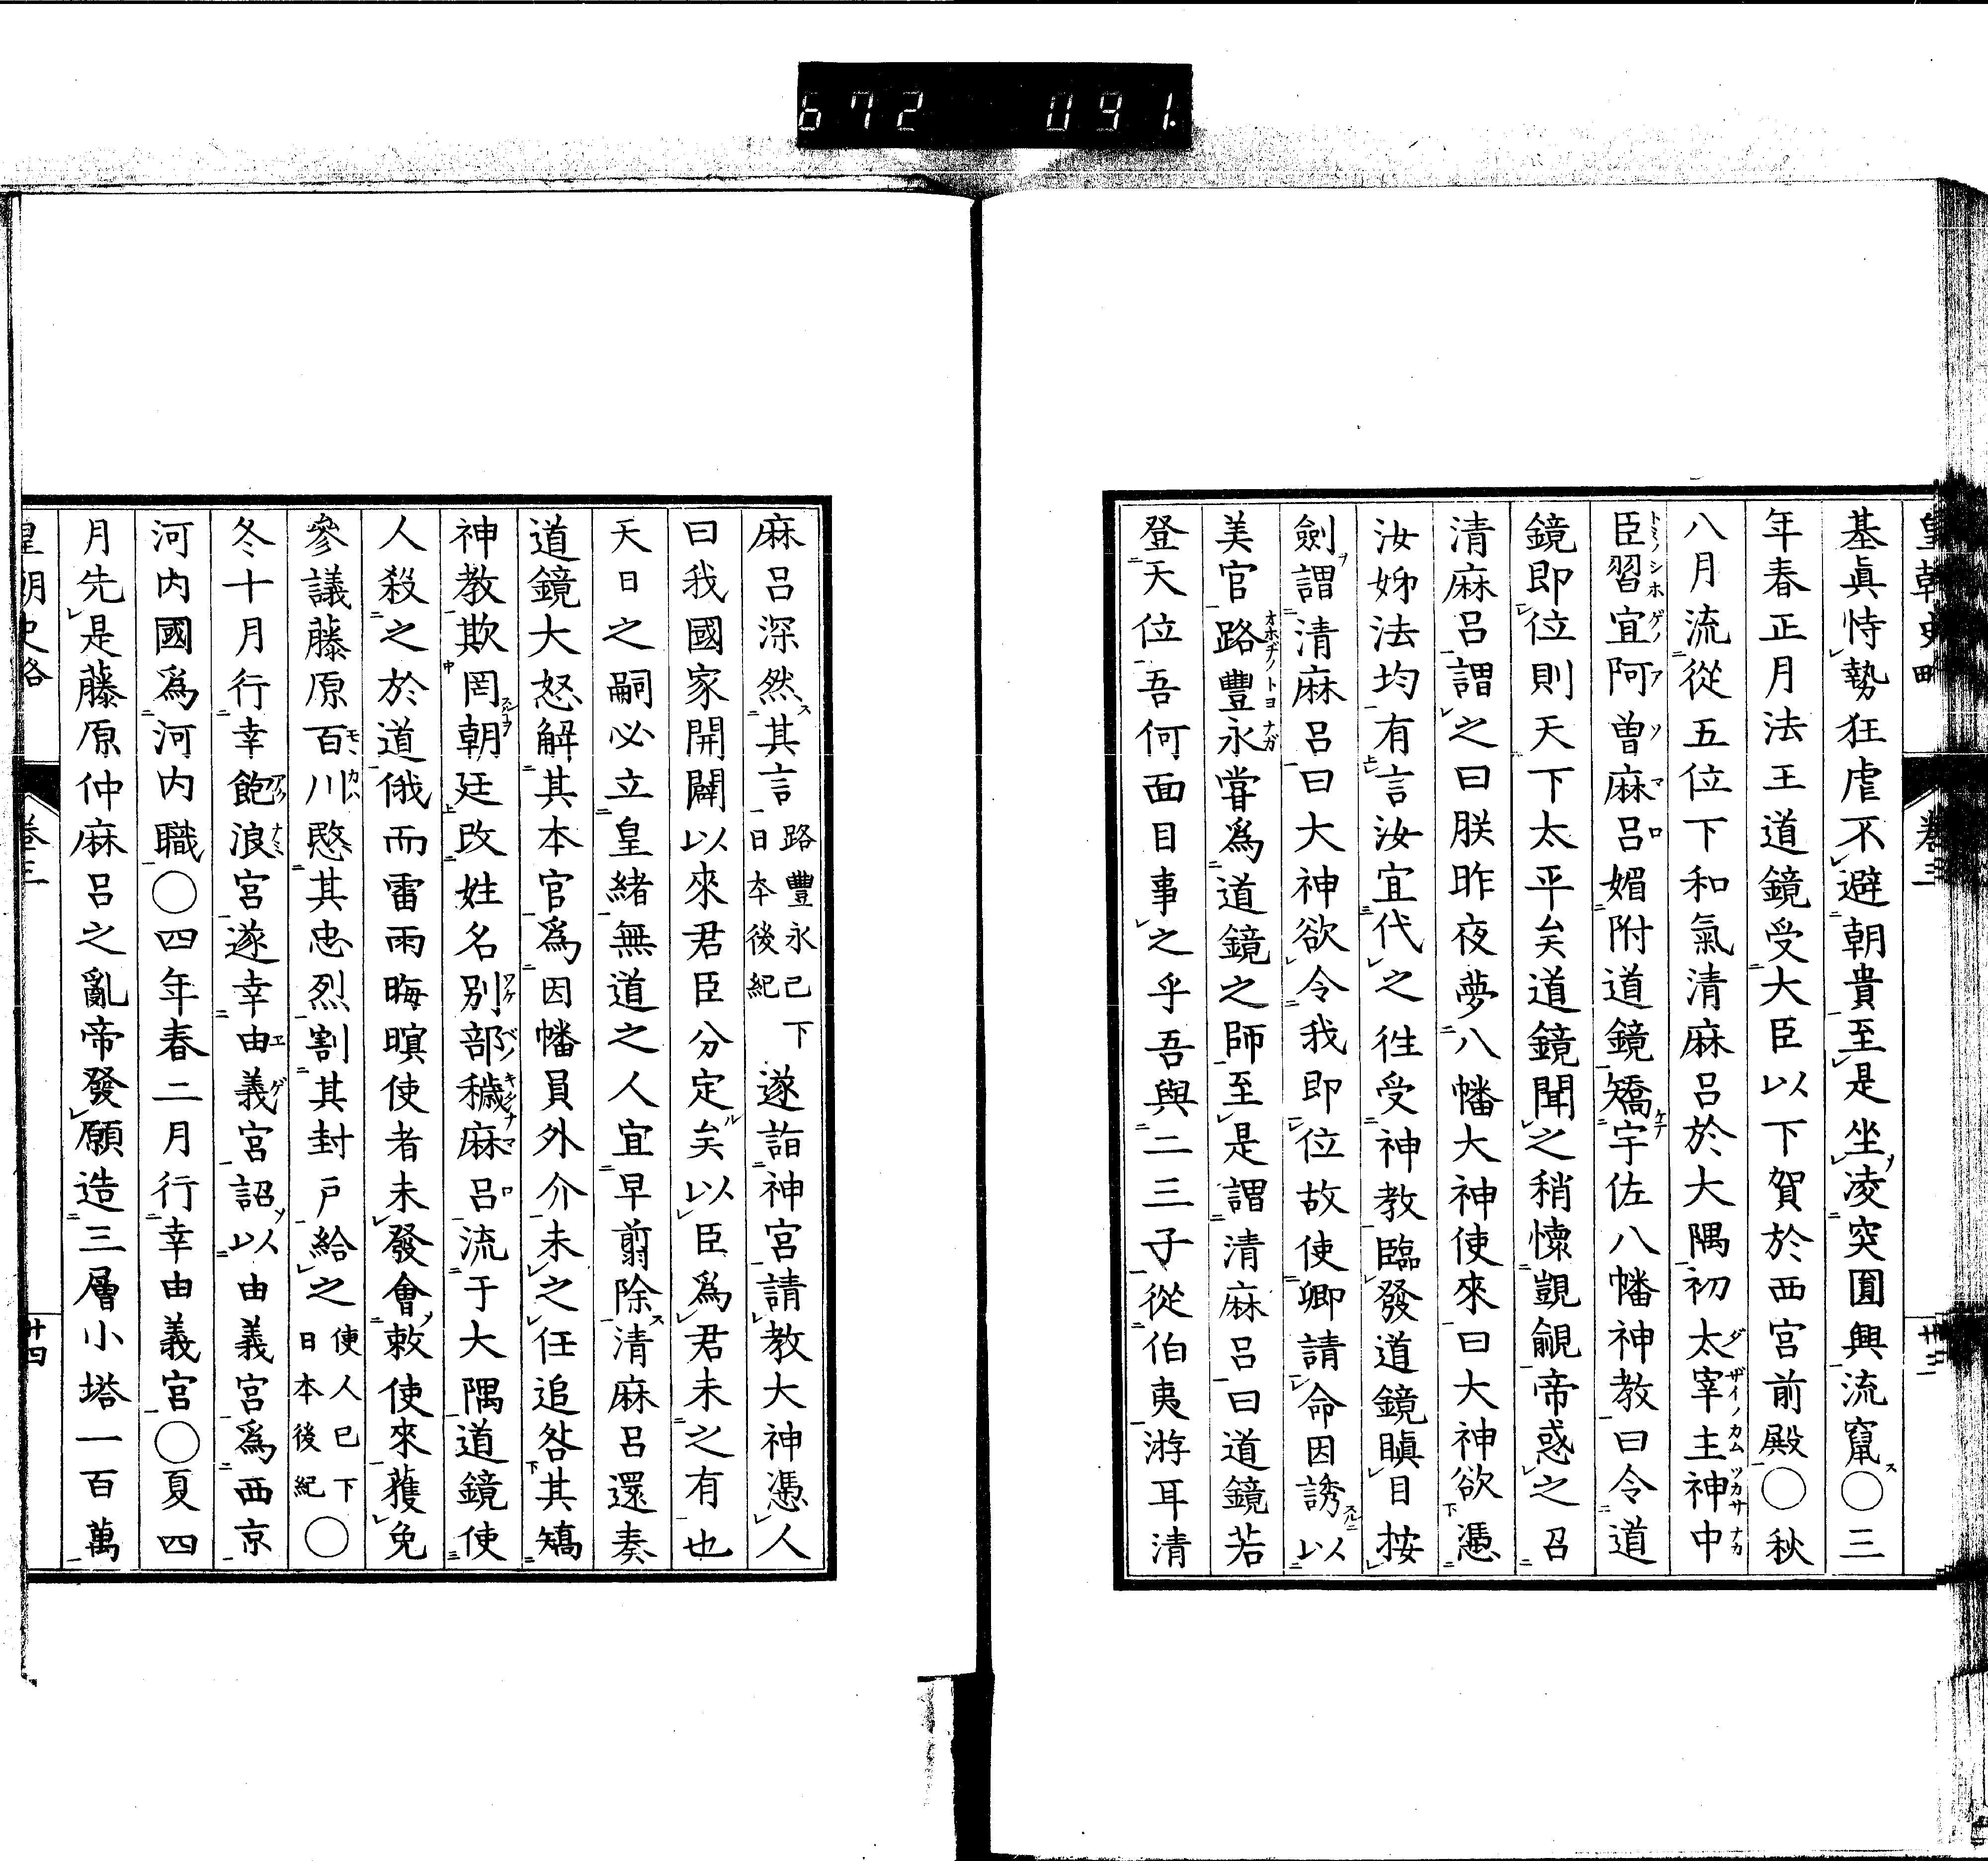 672 091
皇朝史略 卷三 廿三
基眞恃勢狂虐不避朝貴至是坐凌突圓興流竄〇三
年春正月法王道鏡受大臣以下賀於西宮前殿〇秋
八月流從五位下和氣清麻呂於大隅初太宰主神中
臣習宜阿曽麻呂媚附道鏡矯宇佐八幡神教曰令道
鏡即位則天下太平矣道鏡聞之稍懷覬覦帝惑之召
清麻呂謂之曰朕昨夜夢八幡大神使來曰大神欲憑
汝姊法均有言汝宜代之徃受神教臨發道鏡瞋目按
劍謂清麻呂曰大神欲令我即位故使卿請命因誘以
美官路豐永嘗爲道鏡之師至是謂清麻呂曰道鏡若
登天位吾何面目事之乎吾與二三子從伯夷游耳清
麻呂深然其言路豐永已下日本後紀遂詣神宮請教大神憑人
曰我國家開闢以來君臣分定矣以臣爲君未之有也
天日之嗣必立皇緒無道之人宜早翦除清麻呂還奏
道鏡大怒解其本官爲因幡員外介未之任追咎其矯
神教欺罔朝廷改姓名別部穢麻呂流于大隅道鏡使
人殺之於道俄而雷雨晦暝使者未發會敕使來獲免
參議藤原百川愍其忠烈割其封戸給之使人已下日本後紀〇
冬十月行幸飽浪宮遂幸由義宮詔以由義宮爲西京
河内國爲河内職〇四年春二月行幸由義宮〇夏四
月先是藤原仲麻呂之亂帝發願造三層小塔一百萬
皇朝史略 卷三 廿四